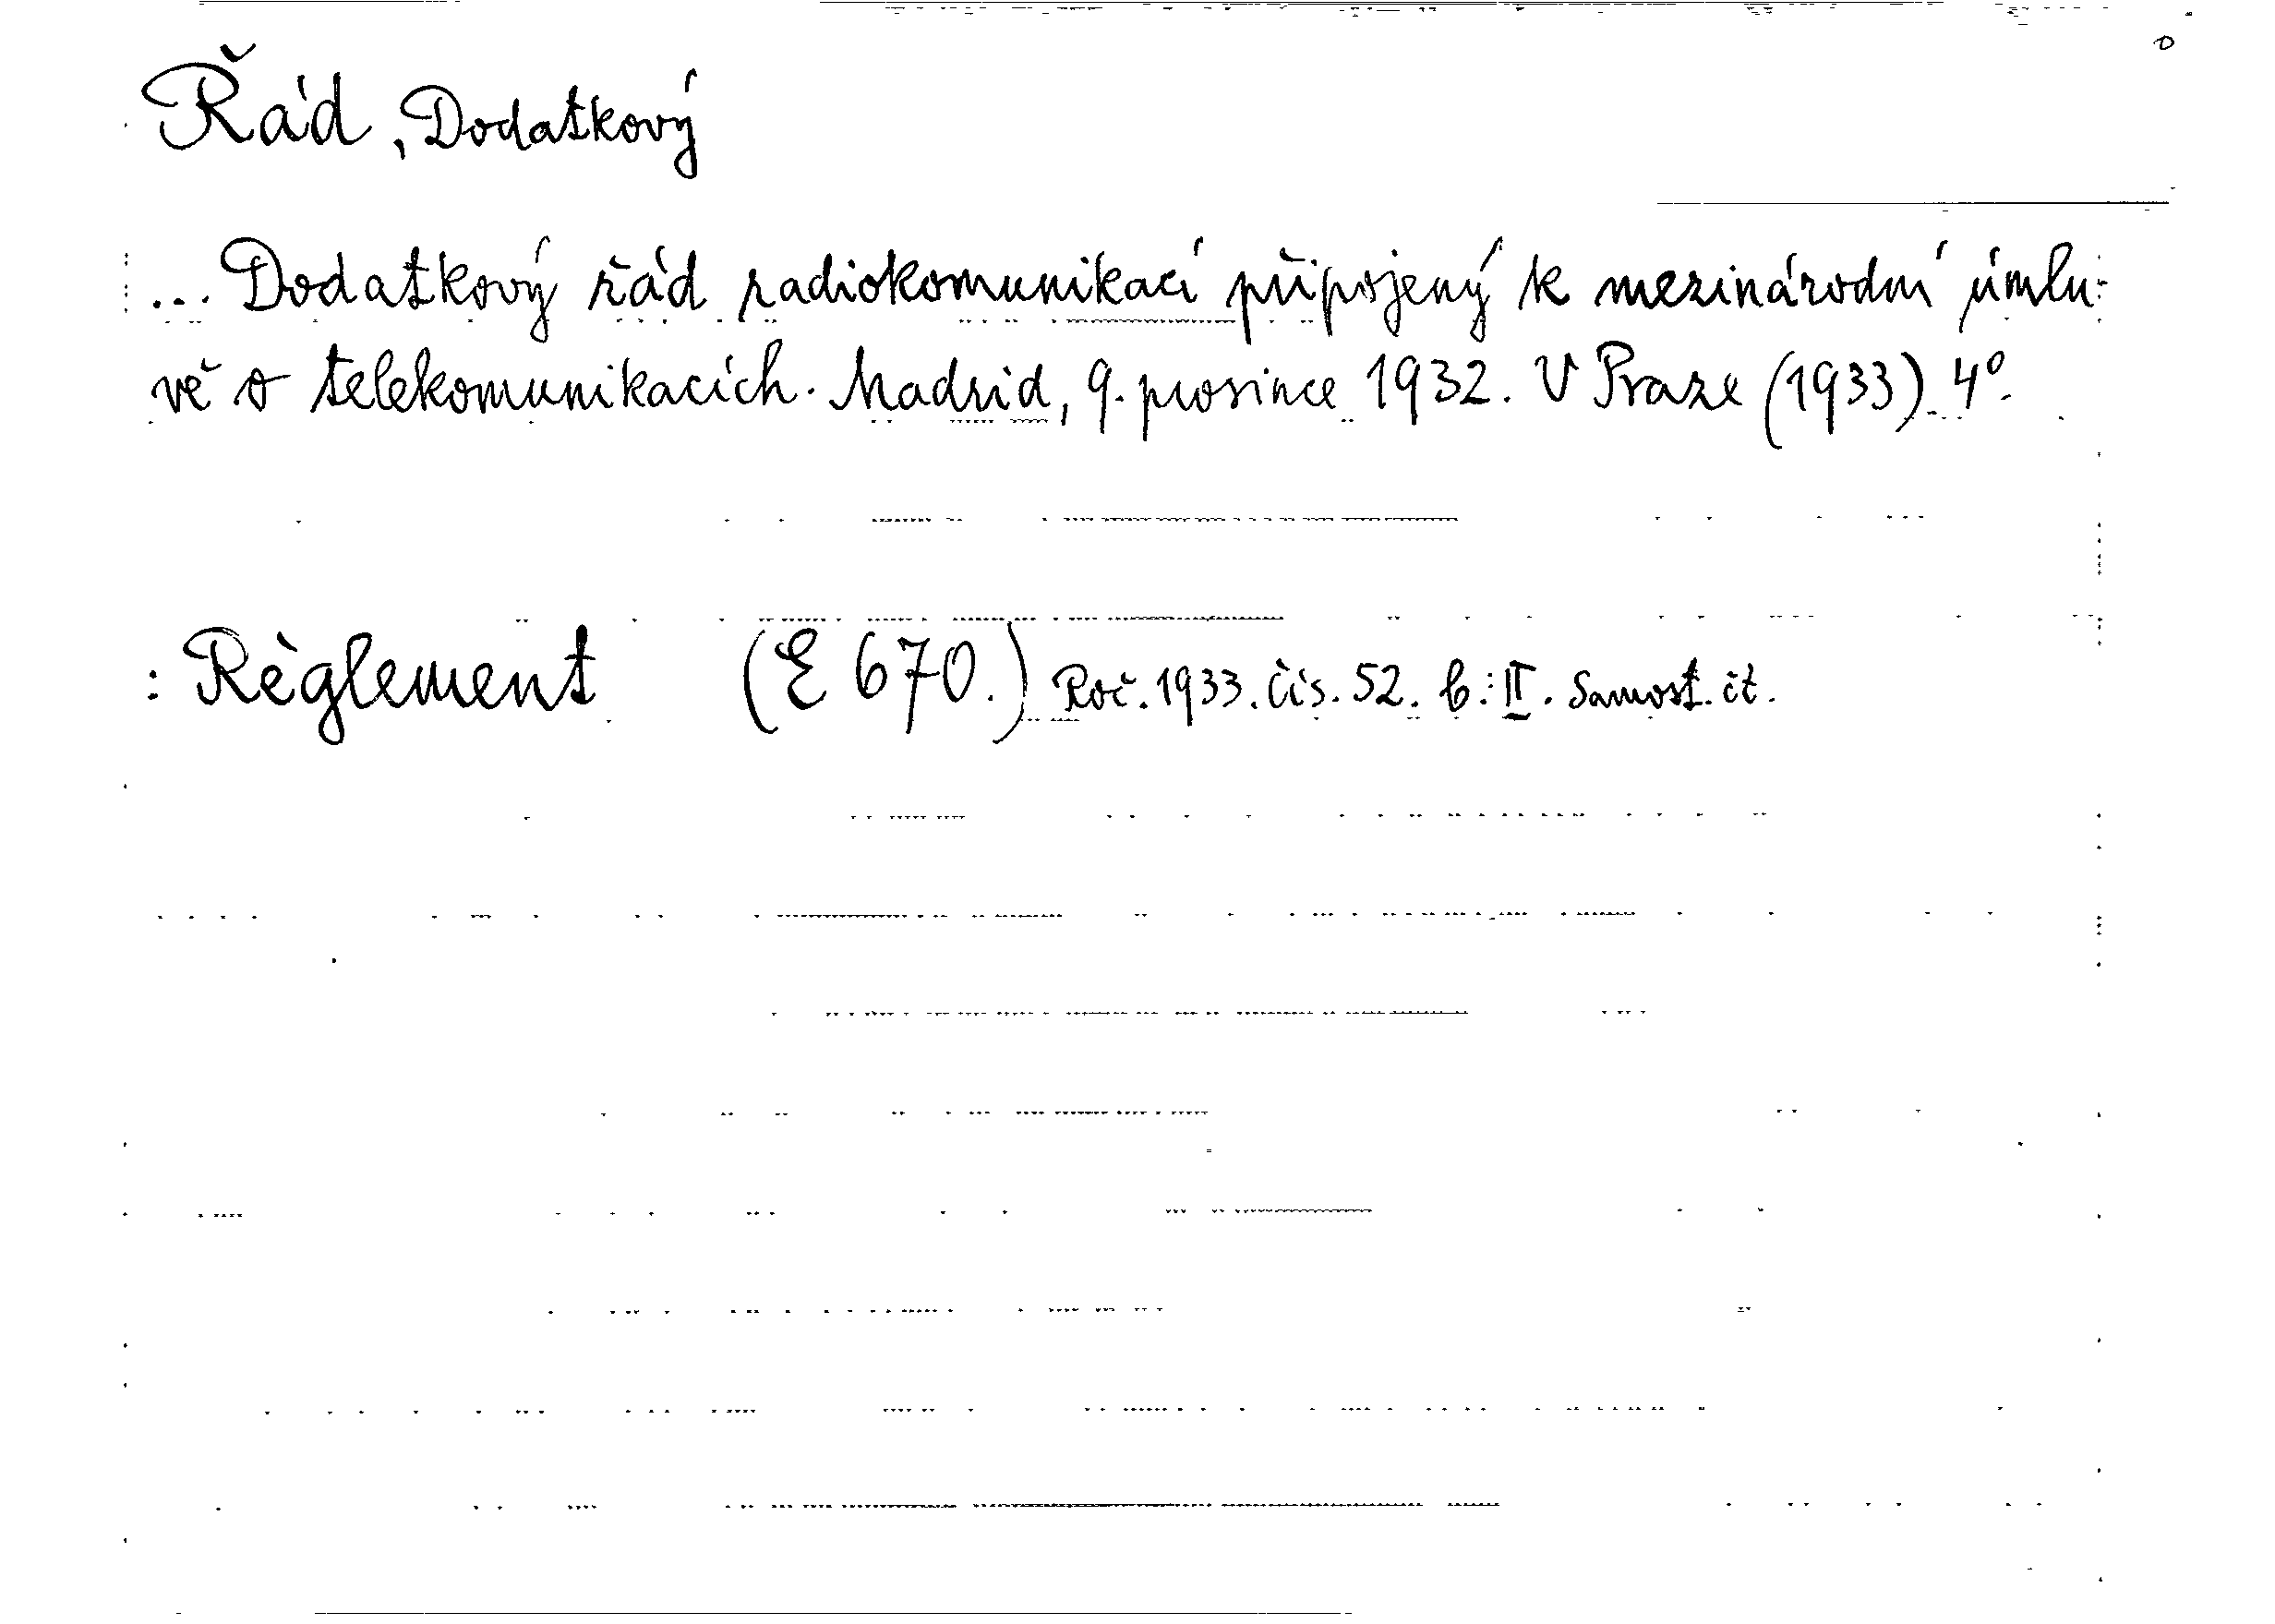 Řád, Dodatkový
... Dodatkový řád radiokomunikací připojený k mezinárodní úmlu-
vě o telekomunikacích. Madrid, 9. prosince 1932. V Praze (1933) 4°.
: Règlement (E 670.) Roč. 1933. čís. 52. b: II. Samost. čt.